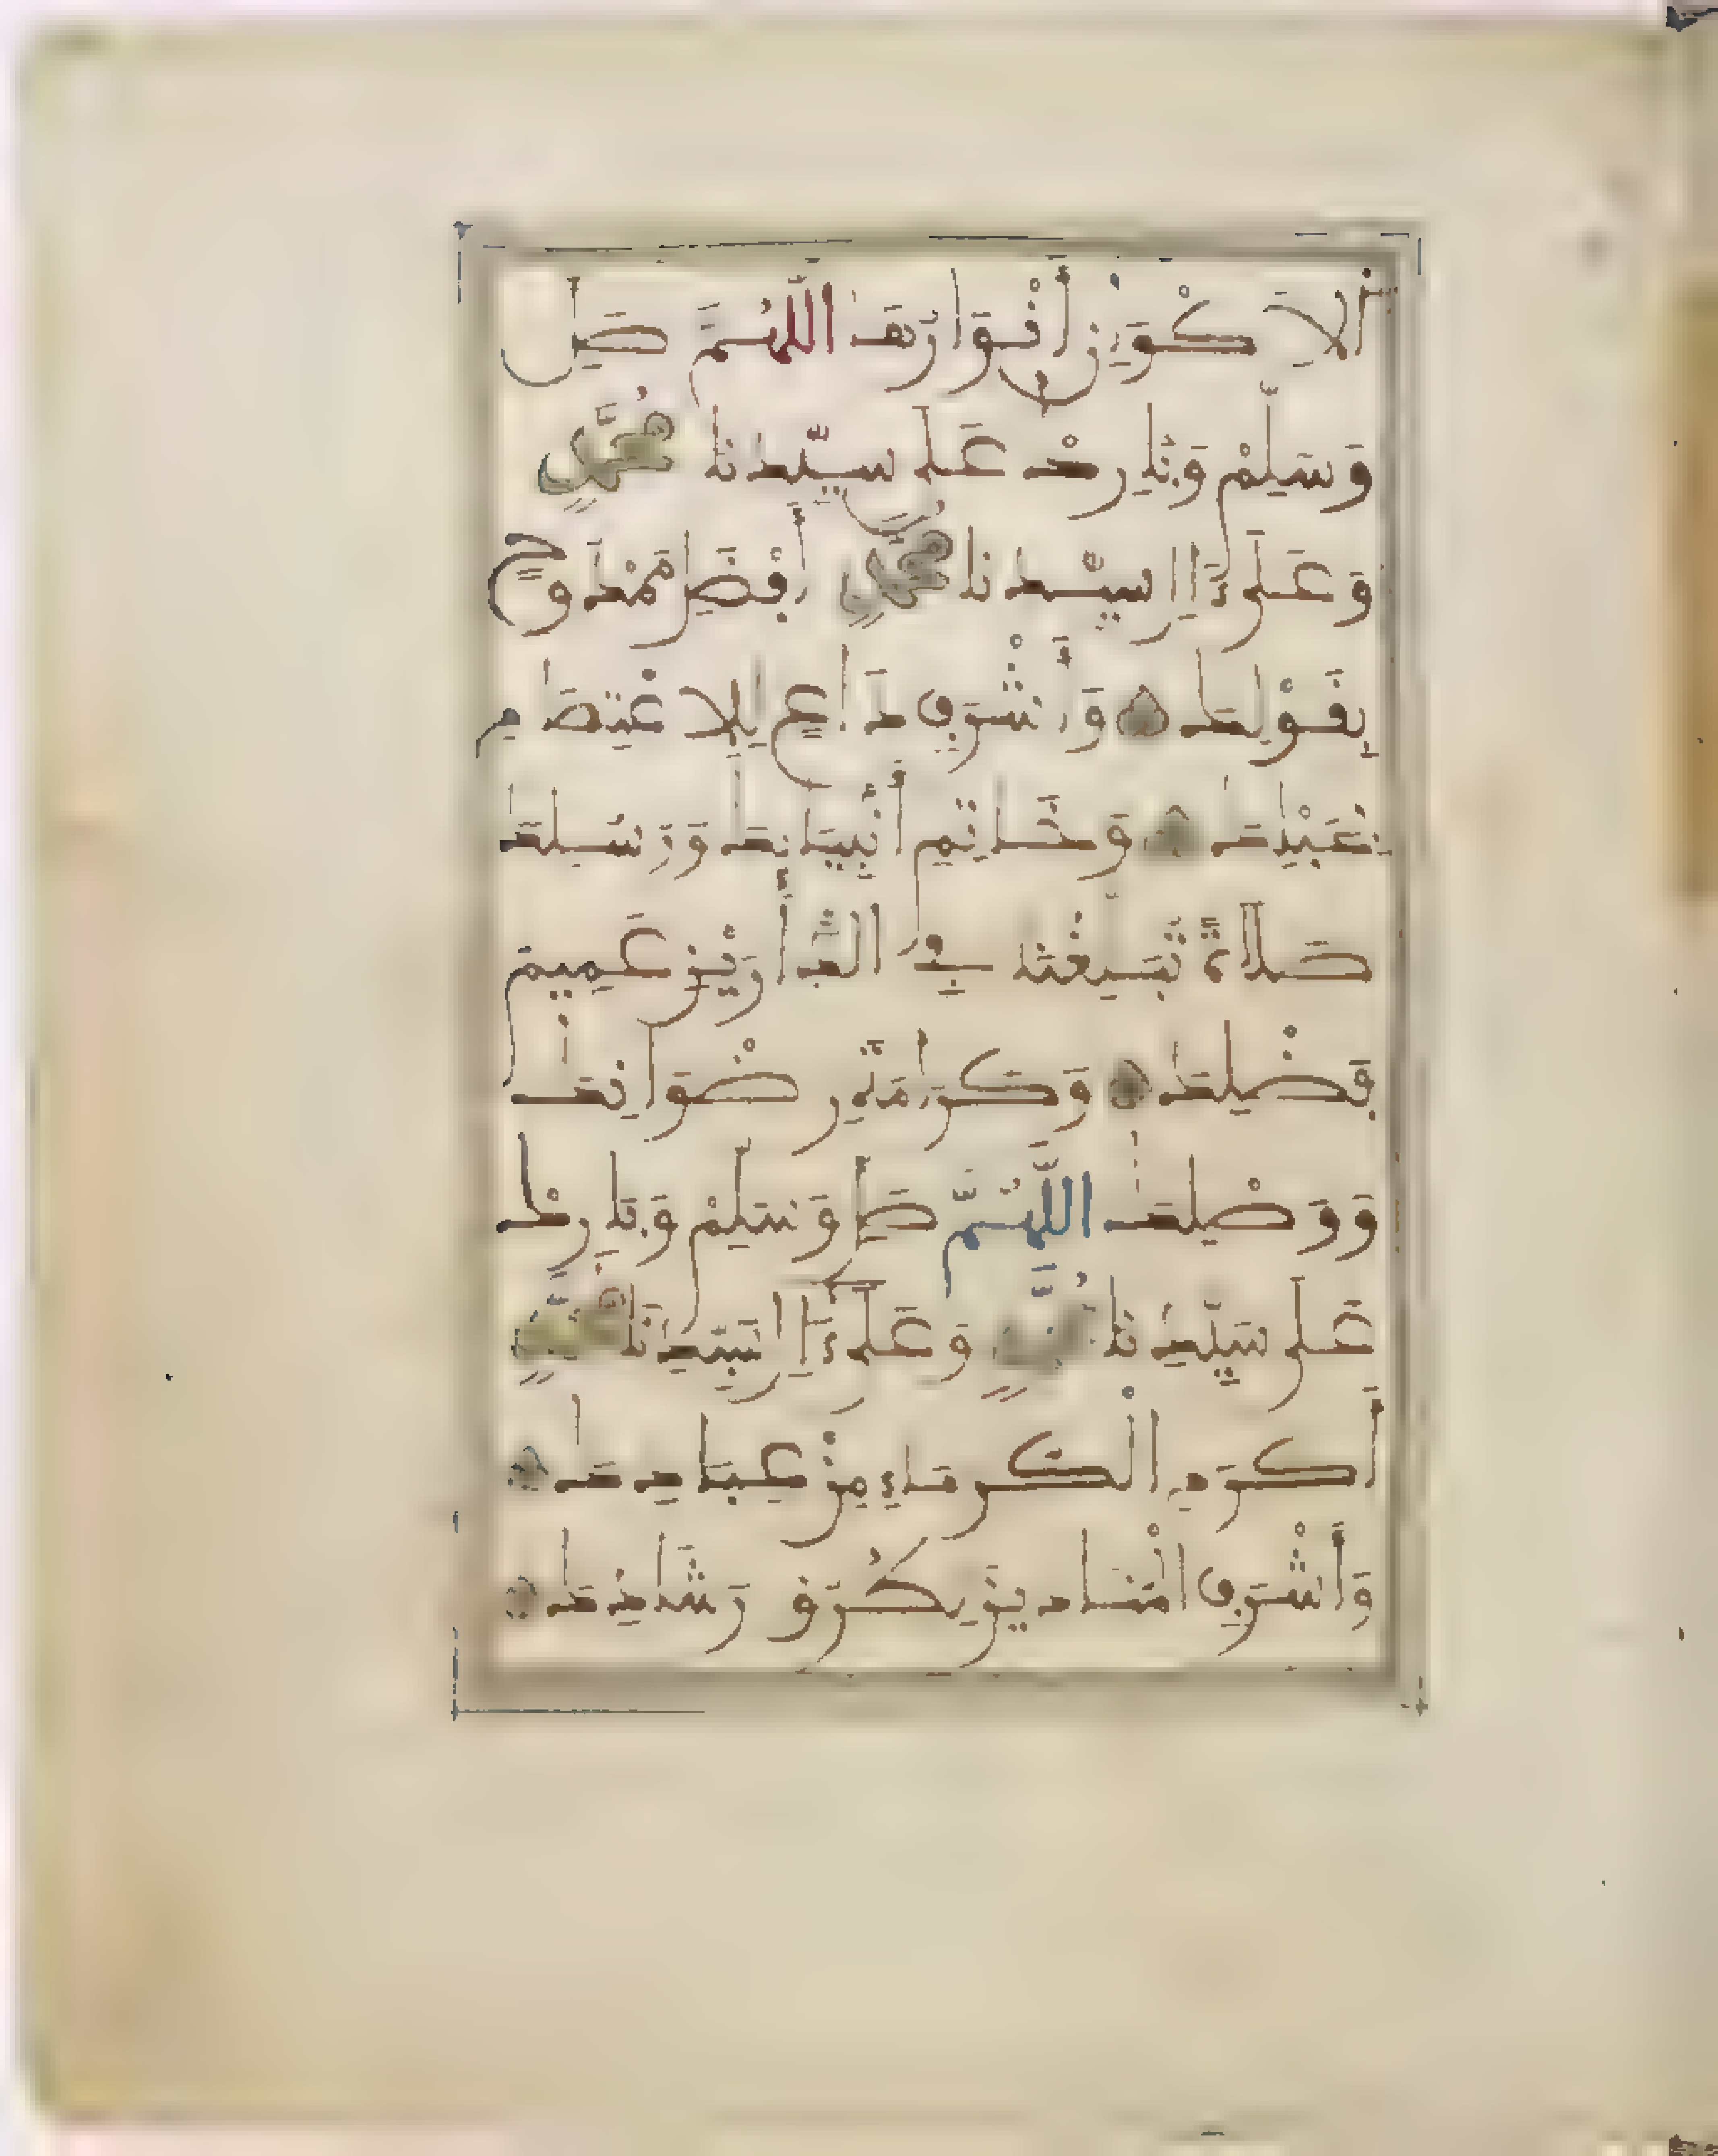 اَلاَكْوَانِ أَنْوَارُهَا اللَّهُمَّ صَلِّ
وَسَلِّمْ وَبَارِكْ عَلَى سَيِّدِنَا مُحَمَّدٍ
وَعَلَى ءَالِ سَيِّدِنَا مُحَمَّدٍ أَفْضَلِ مَمْدُوحٍ
بِقَوْلِكَ وَأَشْرَفِ دَاعٍ لِلاِعْتِصَامِ
بِحَبْلِكَ وَخَاتِمِ أَنْبِيَائِكَ وَرُسُلِكَ
صَلَاةً تُبَلِّغُنَا فِي الدَّارَيْنِ عَمِيمَ
فَضْلِكَ وَكَرَامَةَ رِضْوَانِكَ
وَوَصْلِكَ اللَّهُمَّ صَلِّ وَسَلِّمْ وَبَارِكْ
عَلَى سَيِّدِنَا مُحَمَّدٍ وَعَلَى ءَالِ سَيِّدِنَا مُحَمَّدٍ
أَكْرَمِ الْكُرَمَاءِ مِنْ عِبَادِكَ
وَأَشْرَفِ الْمُنَادِينَ لِطُرُقِ رَشَادِكَ